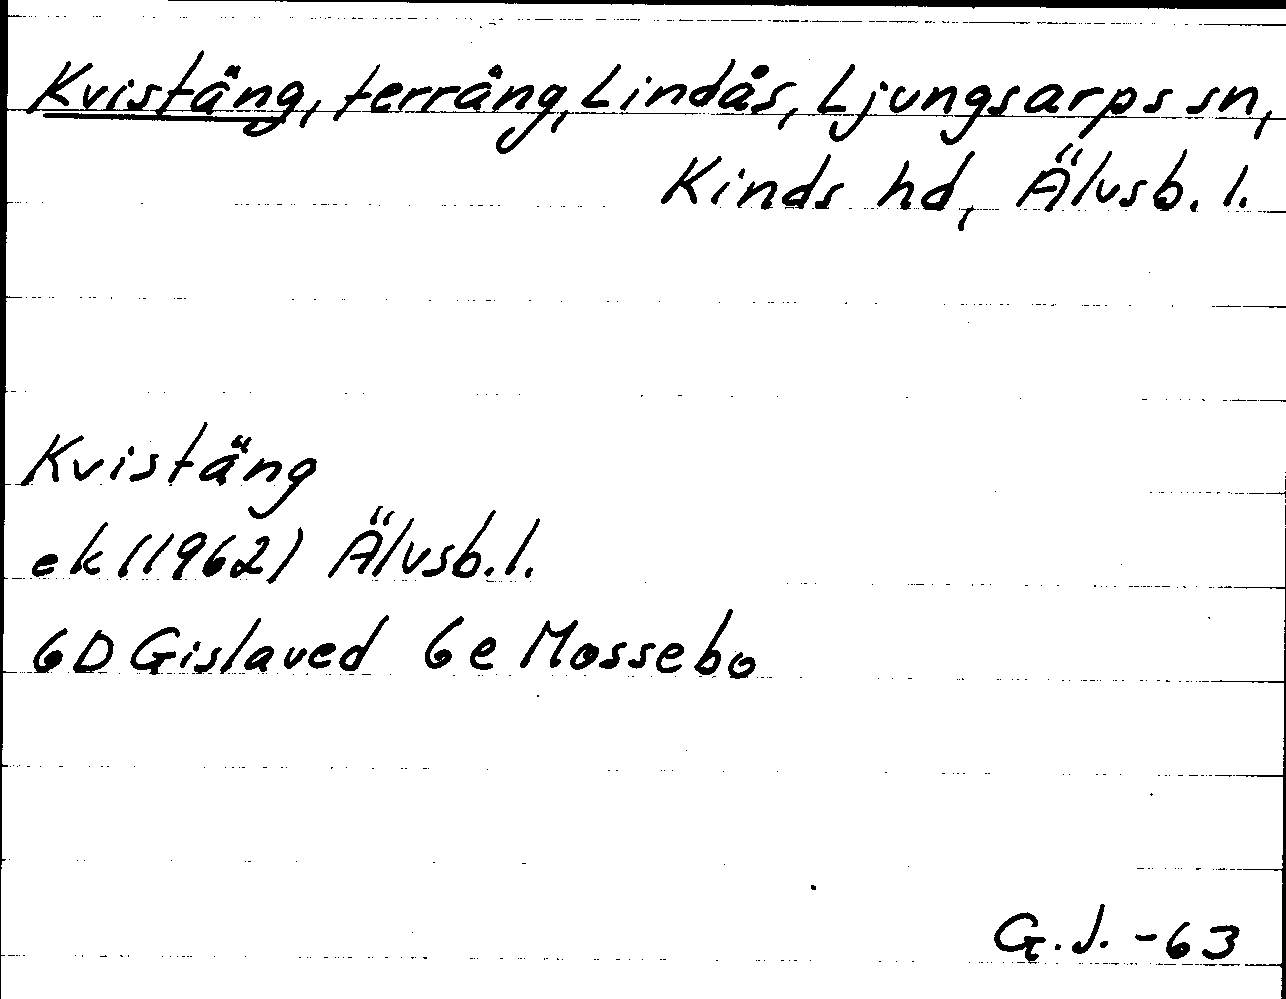 Kvistäng, terräng, Lindås, Ljungsarps sn,
Kinds hd, Älvsb. l.
Kvistäng
ek (1962) Älvsb. l.
6D Gislaved 6e Mossebo
G.J. -63